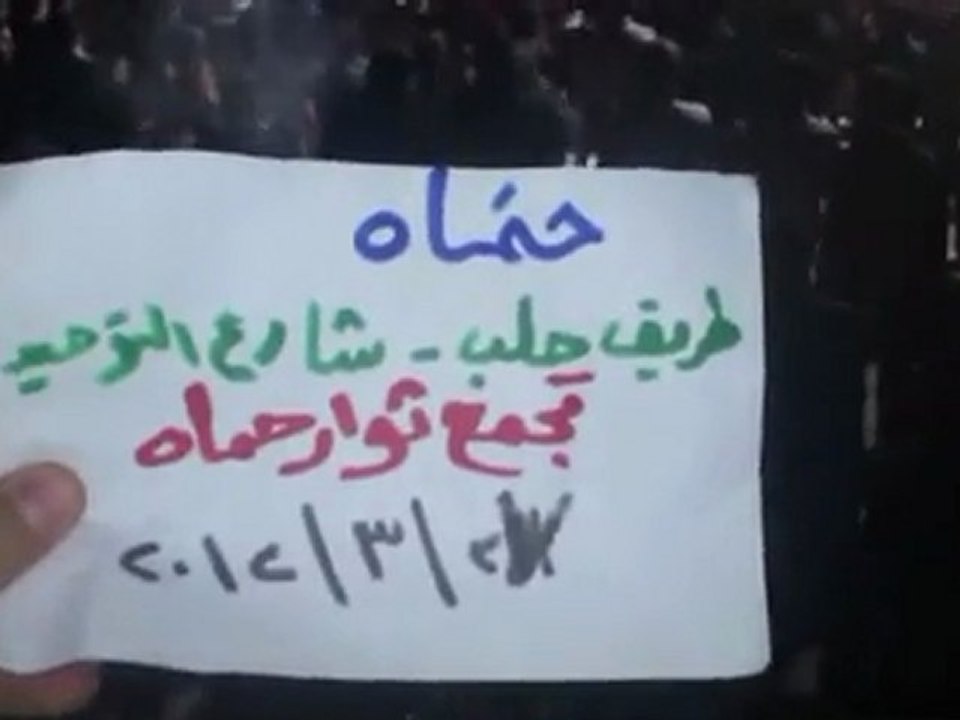 حماه
طريق حلب - شارع التوحيد
تجمع ثوار حماه
/٣/٢٠١٢